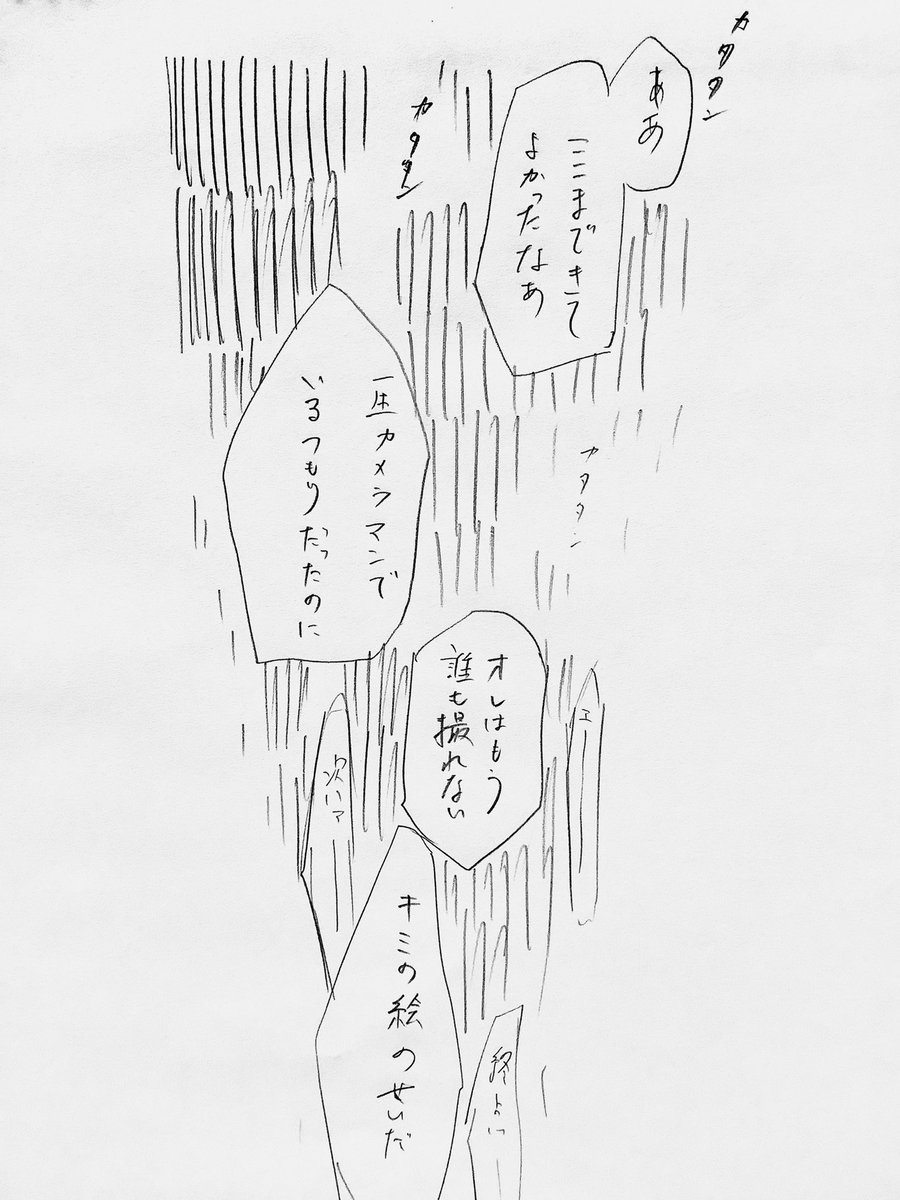 カタタン
ああ
ここまできて
よかったなあ
カタタン
一生カメラマンで
いるつもりだったのに
カタタン
オレはもう
誰も撮れない
エ――
次いァ――
キミの絵のせいだ